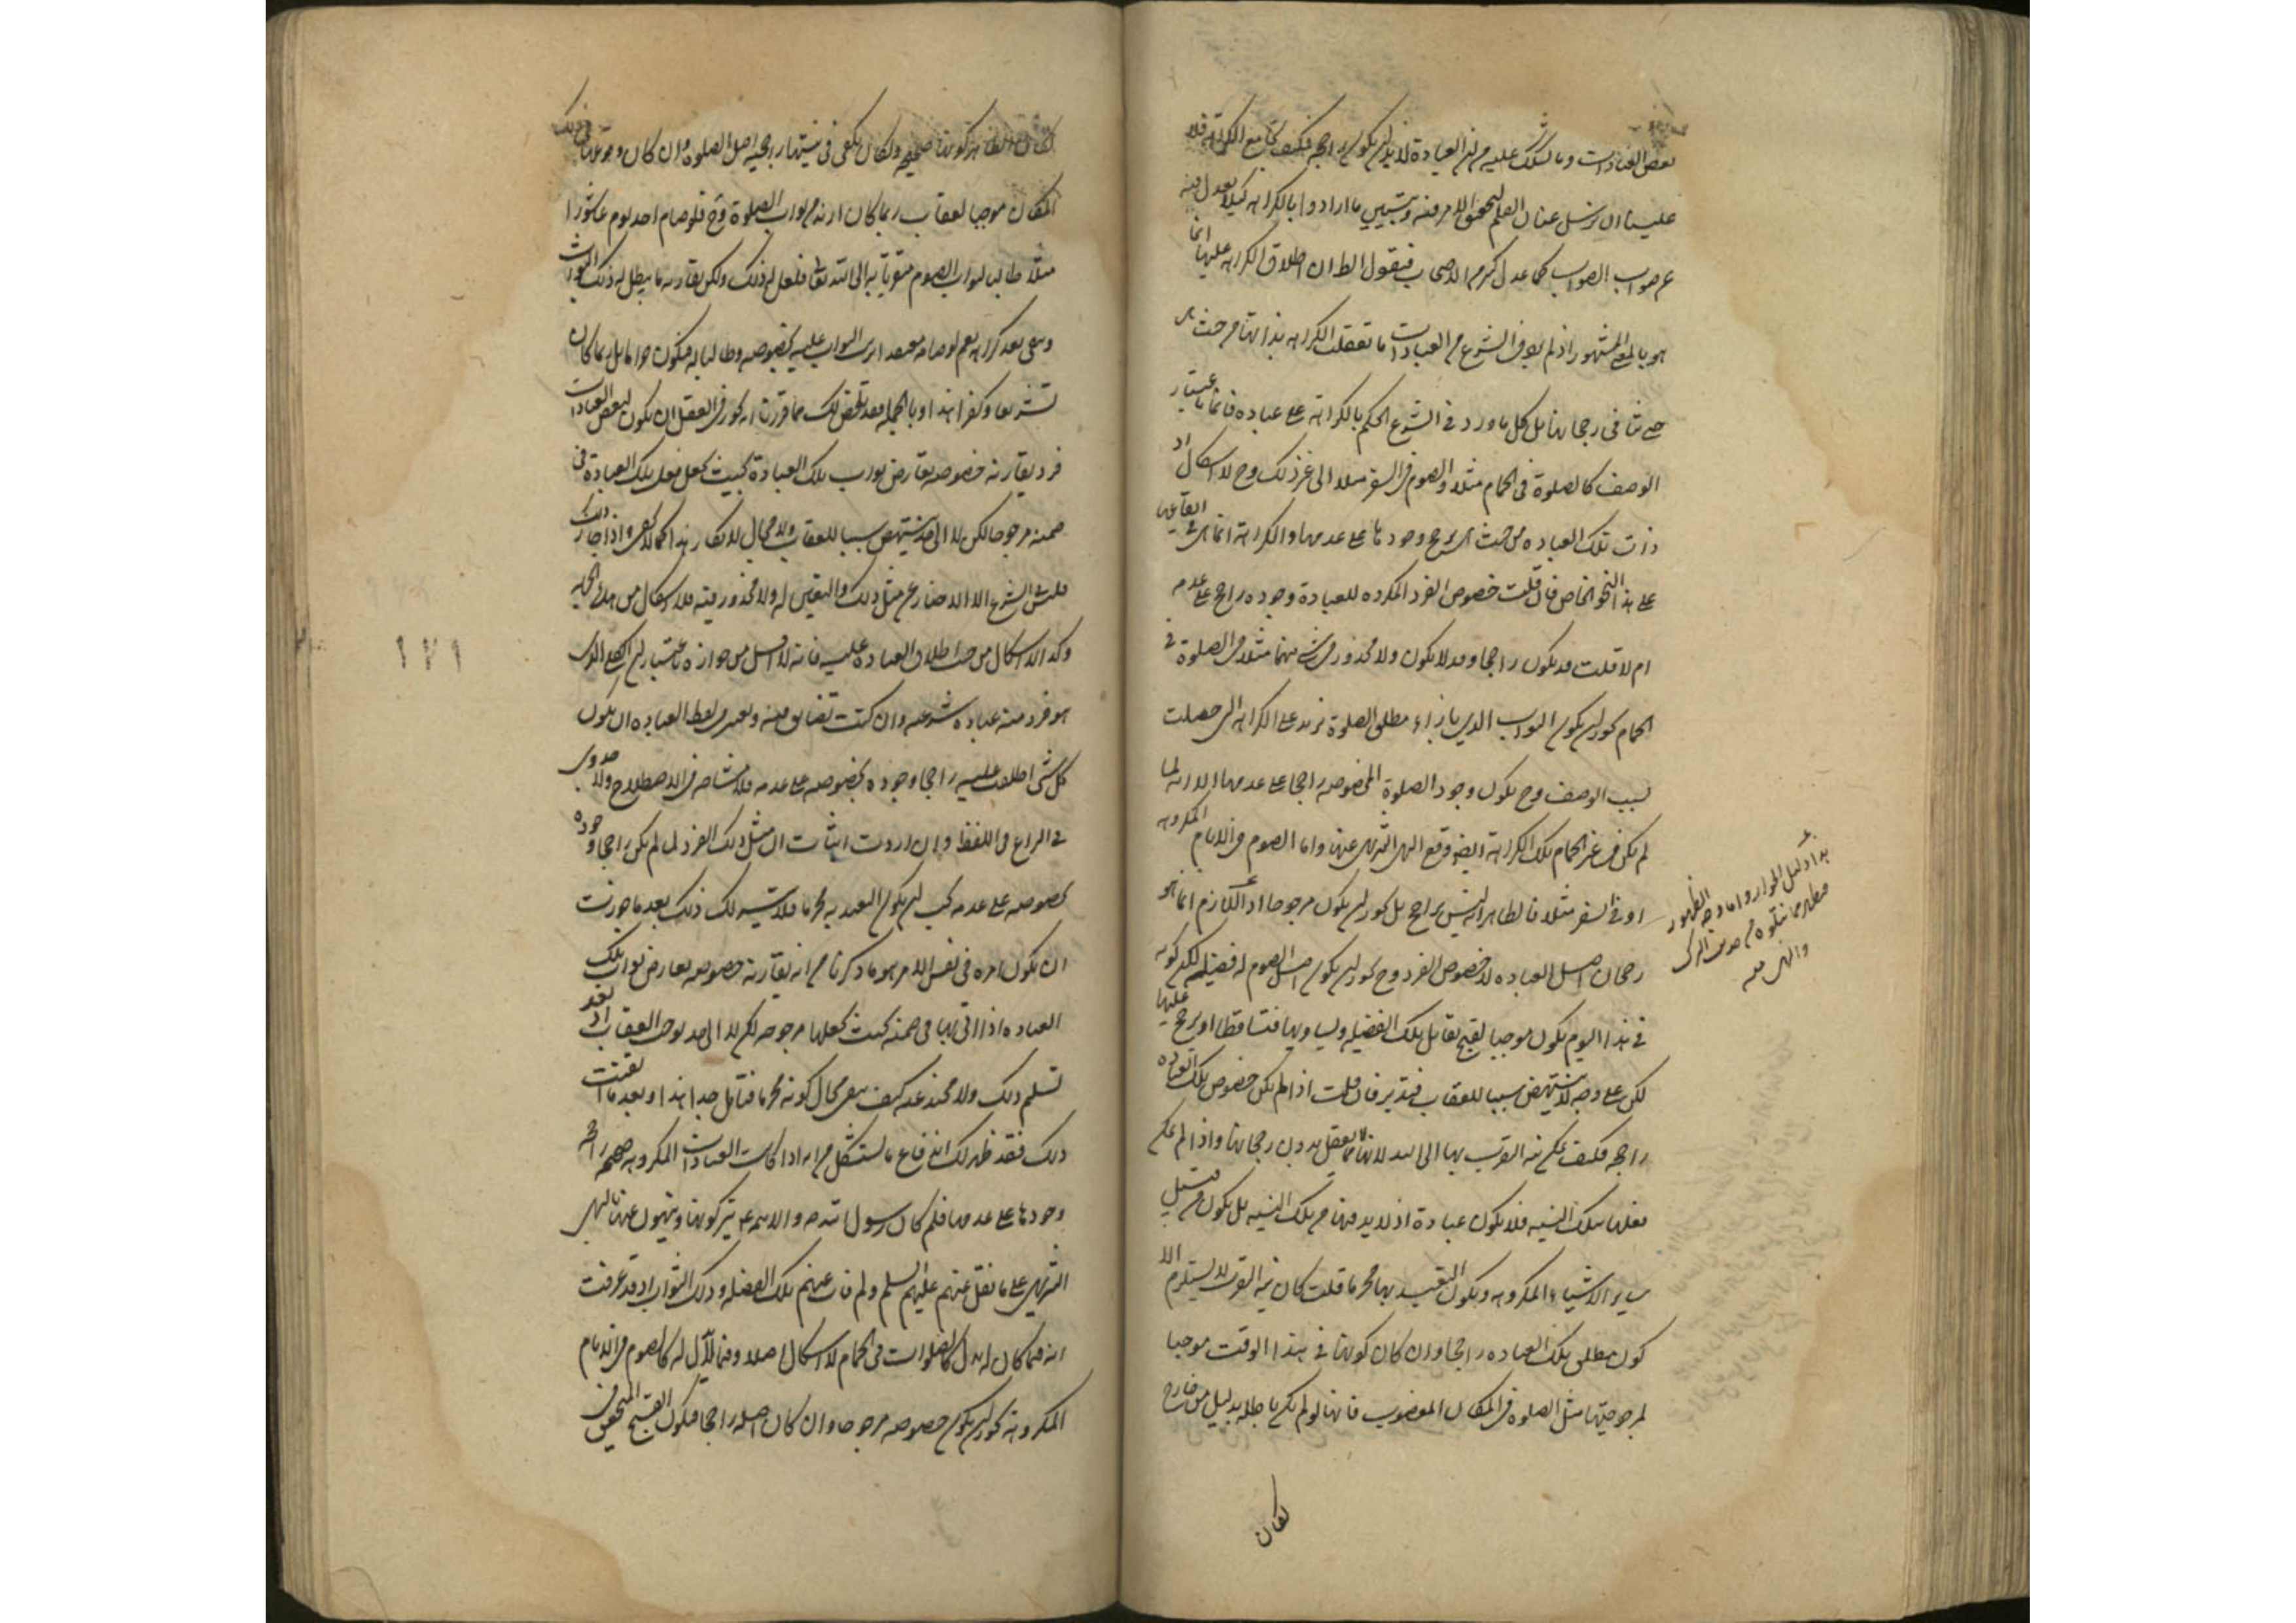 بعض العبادات وما يشكك عليه من ان العبادة لا بد ان يكون راجحه فكيف يجامع الكراهة فلا
علينا ان نرسل عنان القلم لتحقيق الامر فيه وتبيين ما ارادوا بالكراهه كيلا يعدل فيه
عن صواب الصواب كما عدل كثير من الاصحاب فنقول الظ ان اطلاق الكراهه عليها انما
هو بالمعنى المشهور اذ لم يعرف الشرع من العبادات ما تعقلت الكراهه بذاتها من حيث هى
حتى تنافى رجحانها بل كل ما ورد فى الشرع الحكم بالكراهة على عباده فانما باعتبار
الوصف كالصلوة فى الحمام مثلا والصوم فى السفر مثلا الى غير ذلك وح لا اشكال اذ
ذات تلك العباده من حيث هى يرجح وجودها على عدمها والكراهة انما هى فى ايقاعها
على هذا النحو الخاص فان قلت خصوص الفرد المكروه للعبادة وجوده راجح على عدمه
ام لا قلت قد يكون راجحا وقد لا يكون ولا محذور فى شى منهما مثلا فى الصلوة فى
الحمام يجوز ان يكون الثواب الذى بازاء مطلق الصلوة يزيد على الكراهه التى حصلت
بسبب الوصف وح يكون وجود الصلوة المخصوصه راجحا على عدمها الا انه لما
لم يكن فى غير الحمام تلك الكراهة ايضا وقع النهى التنزيهى عنها واما الصوم فى الايام المكروهه
او فى السفر مثلا فالظاهر انه ليس براجح بل يجوز ان يكون مرجوحا اذ اللازم انما هو
رجحان اصل العباده لا خصوص الفرد وح يجوز ان يكون اصل الصوم له فضيله لكن كونه
فى هذا اليوم يكون موجبا لقبح يقابل تلك الفضيله ويساويها فتساقطا او يرجح عليها
لكن على وجه لا ينتهض سببا للعقاب فتدبر فان قلت اذا لم يكن خصوص تلك العباده
راجحه فكيف يمكن نية القرب بها الى الله لانها مما لا يعقل بدون رجحانها واذا لم يمكن
فعلها بتلك النيه فلا يكون عبادة اذ لا بد فيها من تلك النيه بل يكون من قبيل
ساير الاشياء المكروهه ويكون التعبد بها محرما قلت كان نية القرب لا يستلزم الا
كون مطلق تلك العباده راجحا وان كان كونها فى هذا الوقت موجبا
لمرجوحيتها مثل الصلوة فى المكان المغصوب فانها لو لم يكن باطله بدليل من خارج
لكان
هذا دليل الجواز واما وجه الظهور
فيظهر مما ينقلوه من حديث الترك
والنهى منه
لكان الظاهر كونها صحيحه ولكان يكفى فى نيتها راجحيه اصل الصلوة وان كان وقوعها فى ذلك
المكان موجبا لعقاب ربما كان ازيد من ثواب الصلوة وح فلو صام احد يوم عاشورا
مثلا طالبا لثواب الصوم متقربا به الى الله تعالى فلعل له ذلك ولكن يقارنه ما يبطل به ذلك الثواب
وبقى بعد كراهه نعم لو صامه معتقدا ترتب الثواب عليه بخصوصه وطالبا له فيكون حراما بل ربما كان
تشريعا وكفرا هذا وبالجمله فقد تلخص لك مما قررنا انه يجوز فى العقل ان يكون لبعض العبادات
فرد يقارنه خصوصيه يعارض ثواب تلك العبادة بحيث يجعل فعل تلك العبادة فى
ضمنه مرجوحا لكن لا الى حد ينتهض سببا للعقاب ولا مجال لانكار هذا كما لا يخفى واذا جاز ذلك
فلتنـ الشرع الا الاخبار عن مثل ذلك والتعيين له ولا محذور فيه فلا اشكال من هذه الجهه
وكذا لا اشكال من حيث اطلاق العباده عليه فانه لا اقل من جوازه باعتبار ان الكلى الذى
هو فرد منه عباده شرعيه وان كنت تضايق فيه وتعتبر فى لفظ العباده ان يكون
كل شى اطلقت عليه راجحا وجوده بخصوصه على عدمه فلا مشاحه فى الاصطلاح ولا جدوى
فى النزاع فى اللفظ وان اردت اثبات ان مثل ذلك الفرد لما لم يكن راجحا وجوده
بخصوصه على عدمه يجب ان يكون التعبد به محرما فلا يتيسر لك ذلك بعد ما جوزت
ان يكون امره فى نفس الامر هو ما ذكرنا من انه يقارنه خصوصيه يعارض ثواب تلك
العباده اذا اتى بها فى ضمنه بحيث يجعلها مرجوحه لكن لا الى حد يوجب العقاب اذ بعد
تسليم ذلك ولا محيد عنه كيف يبقى مجال كونه محرما فتامل جدا هذا وبعد ما اتقنت
ذلك فقد ظهر لك اندفاع ما يستشكل من انه اذا كانت العبادات المكروهه صحيحه راجحه
وجودها على عدمها فلم كان رسول الله ص والائمه ع يتركونها وينهون عنها النهى
التنزيهى على ما نقل عنهم عليهم السلام ولم فات عنهم تلك الفضيله وذلك الثواب اذ قد عرفت
انه فيما كان له بدل كالصلوات فى الحمام لا اشكال اصلا وفيما لا بدل له كالصوم فى الايام
المكروهه يجوز ان يكون خصوصه مرجوحا وان كان اصله راجحا فيكون القبح المتحقق فى
١٧١